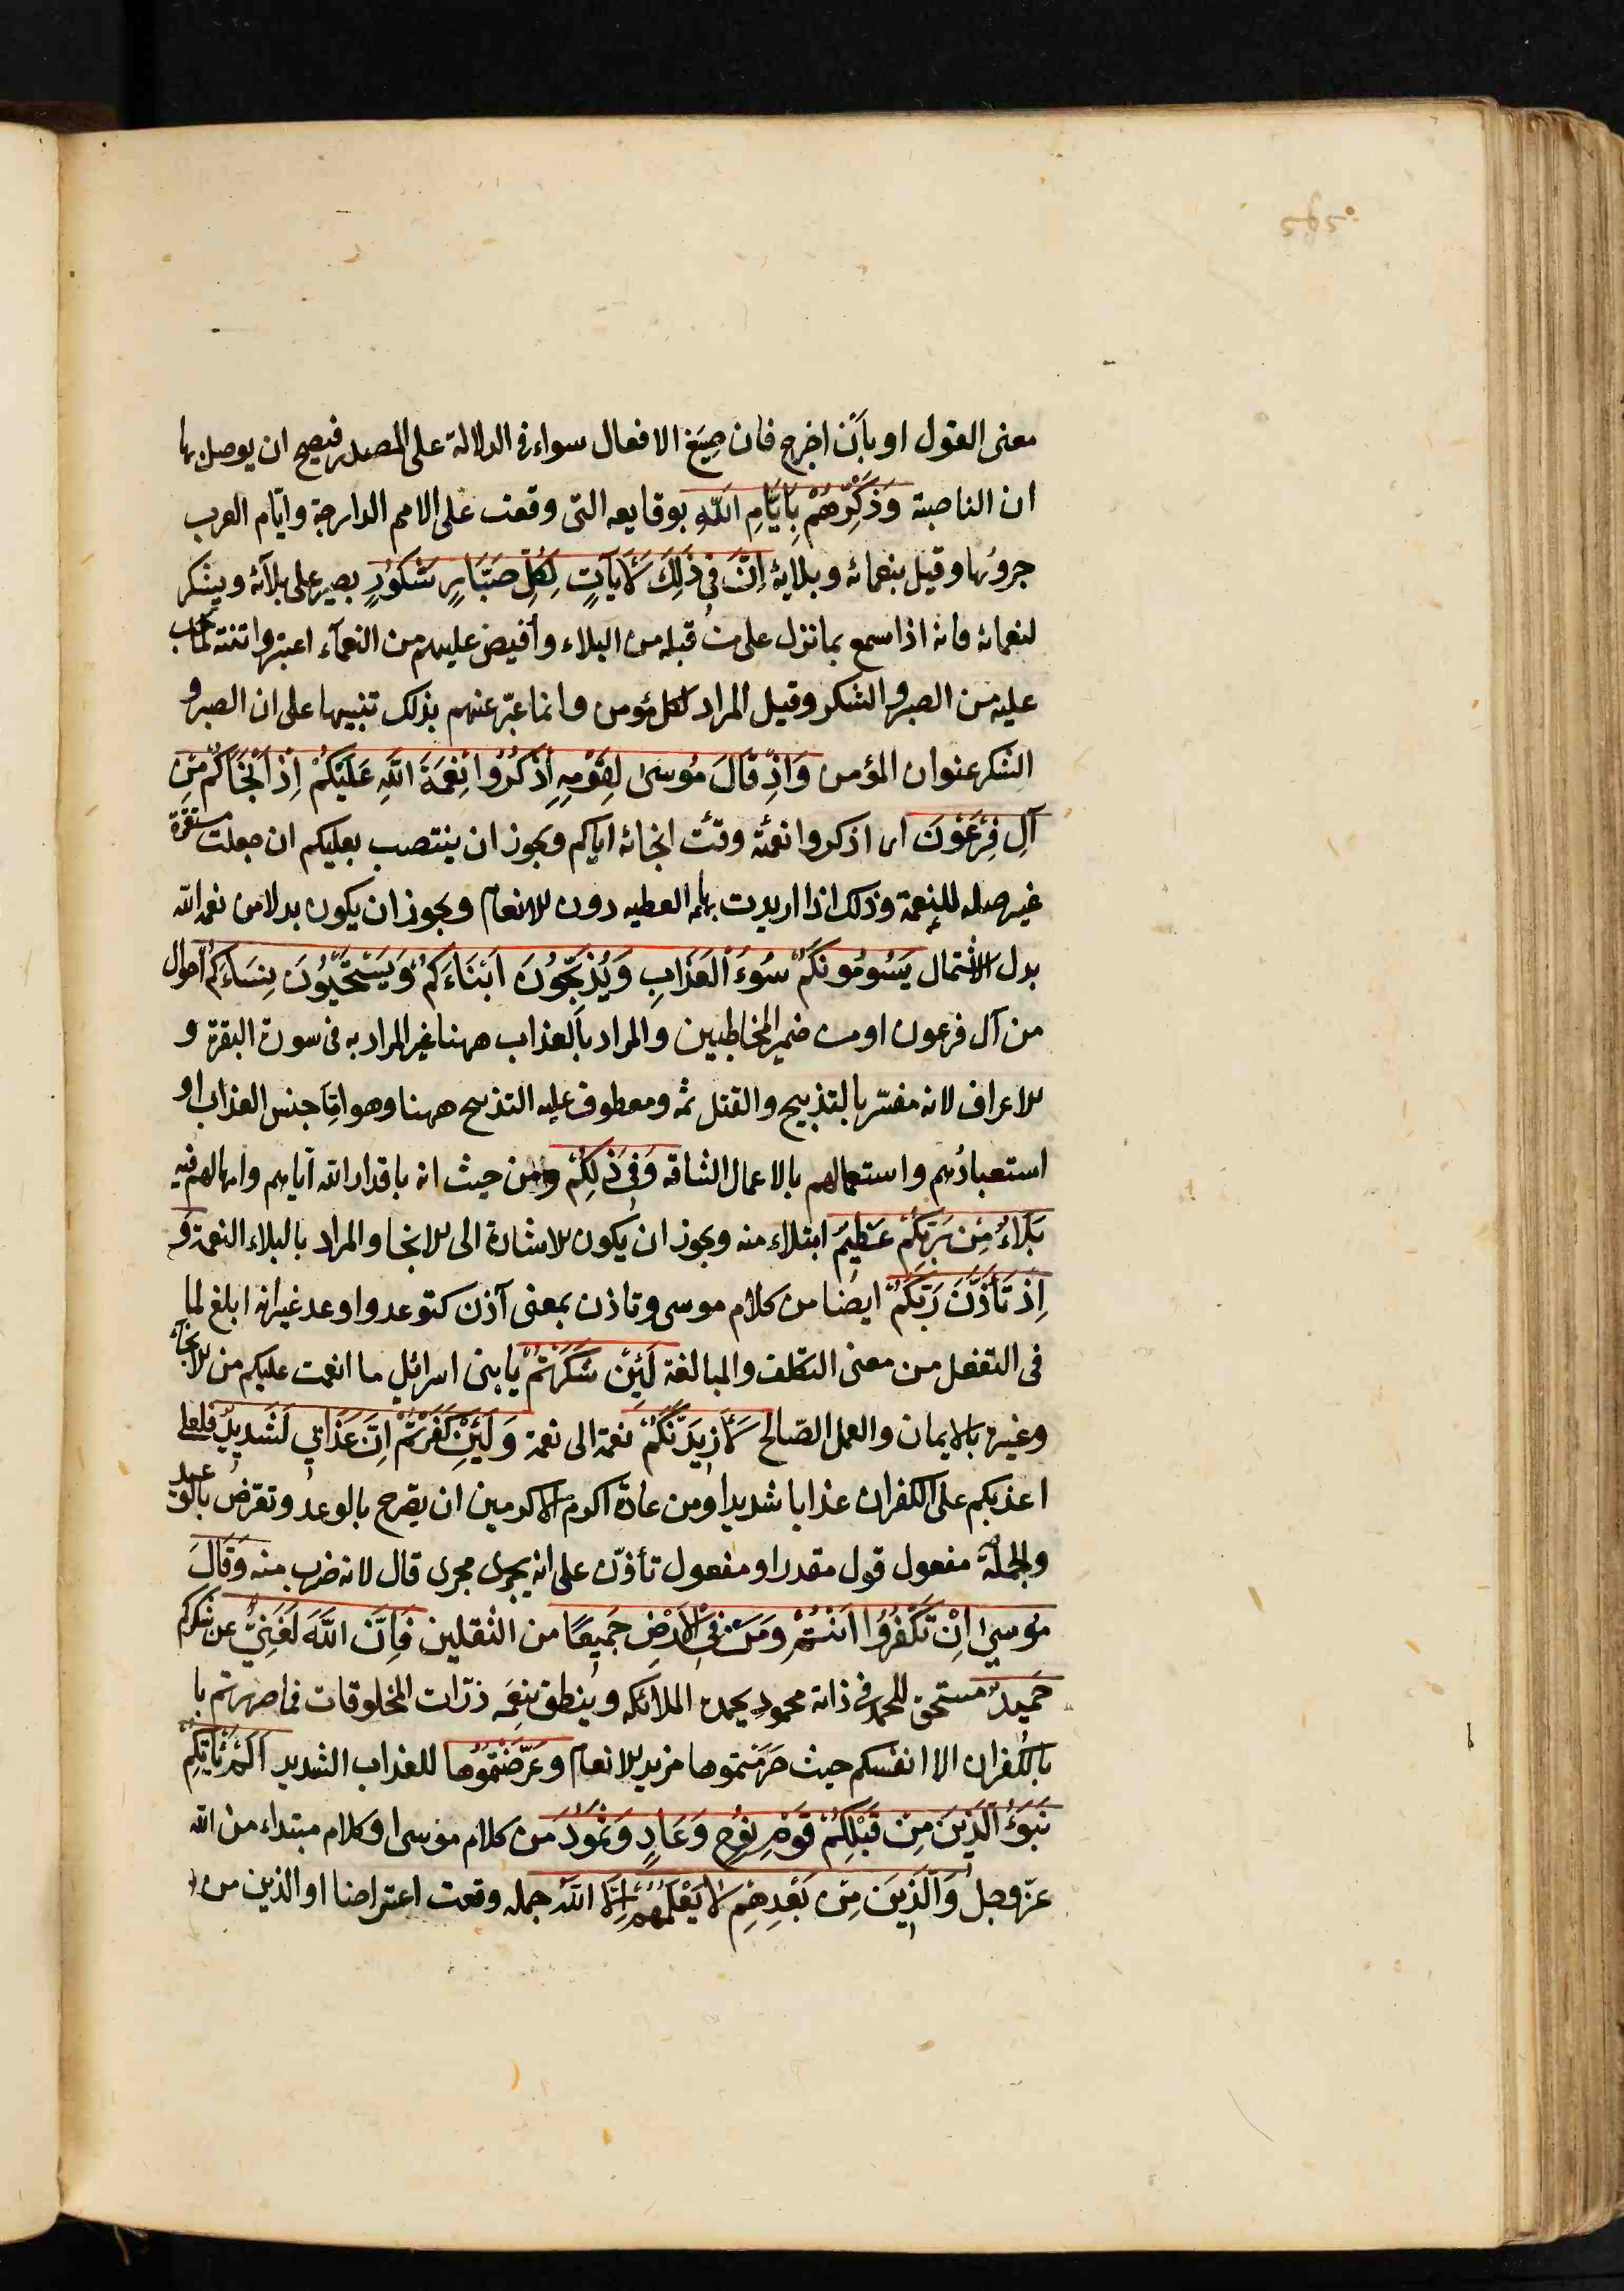 معنى القول او بأن اخرج فان صِيَغ الافعال سواء في الدلالة على المصدر فيصح ان يوصل بها
ان الناصبة وَذَكِّرْهُمْ بِاَيَّامِ اللَّهِ بوقايعه التى وقعت على الامم الدارجة وايّام العرب
حروبها وقيل بنعمائه وبلايه اِنَّ فِى ذَلِكَ لَآيَاتٍ لِكُلِّ صَبَّارٍ شَكُورٍ يصبر على بلائه ويشكر
لنعمائه فانه اذا سمع بما نزل على من قبله من البلاء وأفيض عليهم من النعمآء اعتبر وانتبه لما يجب
عليه من الصبر والشكر وقيل المراد لكل مؤمن وانما عبّر عنهم بذلك تنبيها على ان الصبر و
الشكر عنوان المؤمن وَاِذْ قَالَ مُوسَى لِقَوْمِهِ اذْكُرُوا نِعْمَةَ اللَّهِ عَلَيْكُمْ اِذْ اَنْجَاكُمْ مِنْ
آلِ فِرْعَوْنَ اى اذكروا نعمته وقت انجائه اياكم ويجوز ان ينتصب بعليكم ان جعلت مستقرة
غير صله للنعمة وذلك اذا اريدت بها العطيه دون الانعام ويجوز ان يكون بدلا من نعمة الله
بدل الاشتمال يَسُومُونَكُمْ سُوءَ الْعَذَابِ وَيُذَبِّحُونَ اَبْنَاءَكُمْ وَيَسْتَحْيُونَ نِسَاءَكُمْ احوال
من آل فرعون او من ضمير المخاطبين والمراد بالعذاب ههنا غير المراد به فى سورة البقرة و
الاعراف لانه مفسّر بالتذبيح والقتل ثمه ومعطوف عليه التذبيح ههنا وهو امّا جنس العذاب او
استعبادُهم واستعمالهم بالاعمال الشاقه وَفِى ذَلِكُمْ من حيث انه باقدار الله اياهم وامهالهم فيه
بَلَاءٌ مِنْ رَبِّكُمْ عَظِيمٌ ابتلاء منه ويجوز ان يكون الاشارة الى الانجا والمراد بالبلاء النعمة وَ
اِذْ تَأَذَّنَ رَبُّكُمْ ايضا من كلام موسى وتاذن بمعنى آذن كتوعد واوعد غير انه ابلغ لما
فى التفعل من معنى التكلف والمبالغة لَئِنْ شَكَرْتُمْ يا بنى اسرائيل ما انعمت عليكم من الانجاء
وغيره بالايمان والعمل الصّالح لَاَزِيدَنَّكُمْ نعمة الى نعمة وَلَئِنْ كَفَرْتُمْ اِنَّ عَذَابِي لَشَدِيدٌ فلعلى
اعذبكم على الكفران عذابا شديدا ومن عادة اكرم الاكرمين ان يصرح بالوعد وتعرّض بالوعيد
والجملة مفعول قول مقدر او مفعول تأذّن على انه يجرى مجرى قال لانه ضرب منه وَقَالَ
مُوسىَ اِنْ تَكْفُرُوا اَنْتُمْ وَمَنْ فِي الْاَرْضِ جَمِيعًا من الثقلين فَاِنَّ اللَّهَ لَغَنِيٌّ عن شكركم
حَمِيدٌ مستحق للحمد فى ذاته محمود يحمده الملائكه وينطق بنِعَمه ذرّات المخلوقات فما ضررتم با
بالكفران الا انفسكم حيث حَرَمْتموها مزيد الانعام وعَرَّضْتُمُوها للعذاب الشديد اَلَمْ يَأْتِكُمْ
نَبَؤُ الَّذِينَ مِنْ قَبْلِكُمْ قَوْمِ نُوحٍ وَعَادٍ وَثَمُودَ من كلام موسى او كلام مبتداء من الله
عزّ وجلّ وَالَّذِينَ مِنْ بَعْدِهِمْ لَا يَعْلَمُهُمْ اِلَّا اللَّهُ جمله وقعت اعتراضا او الذين من